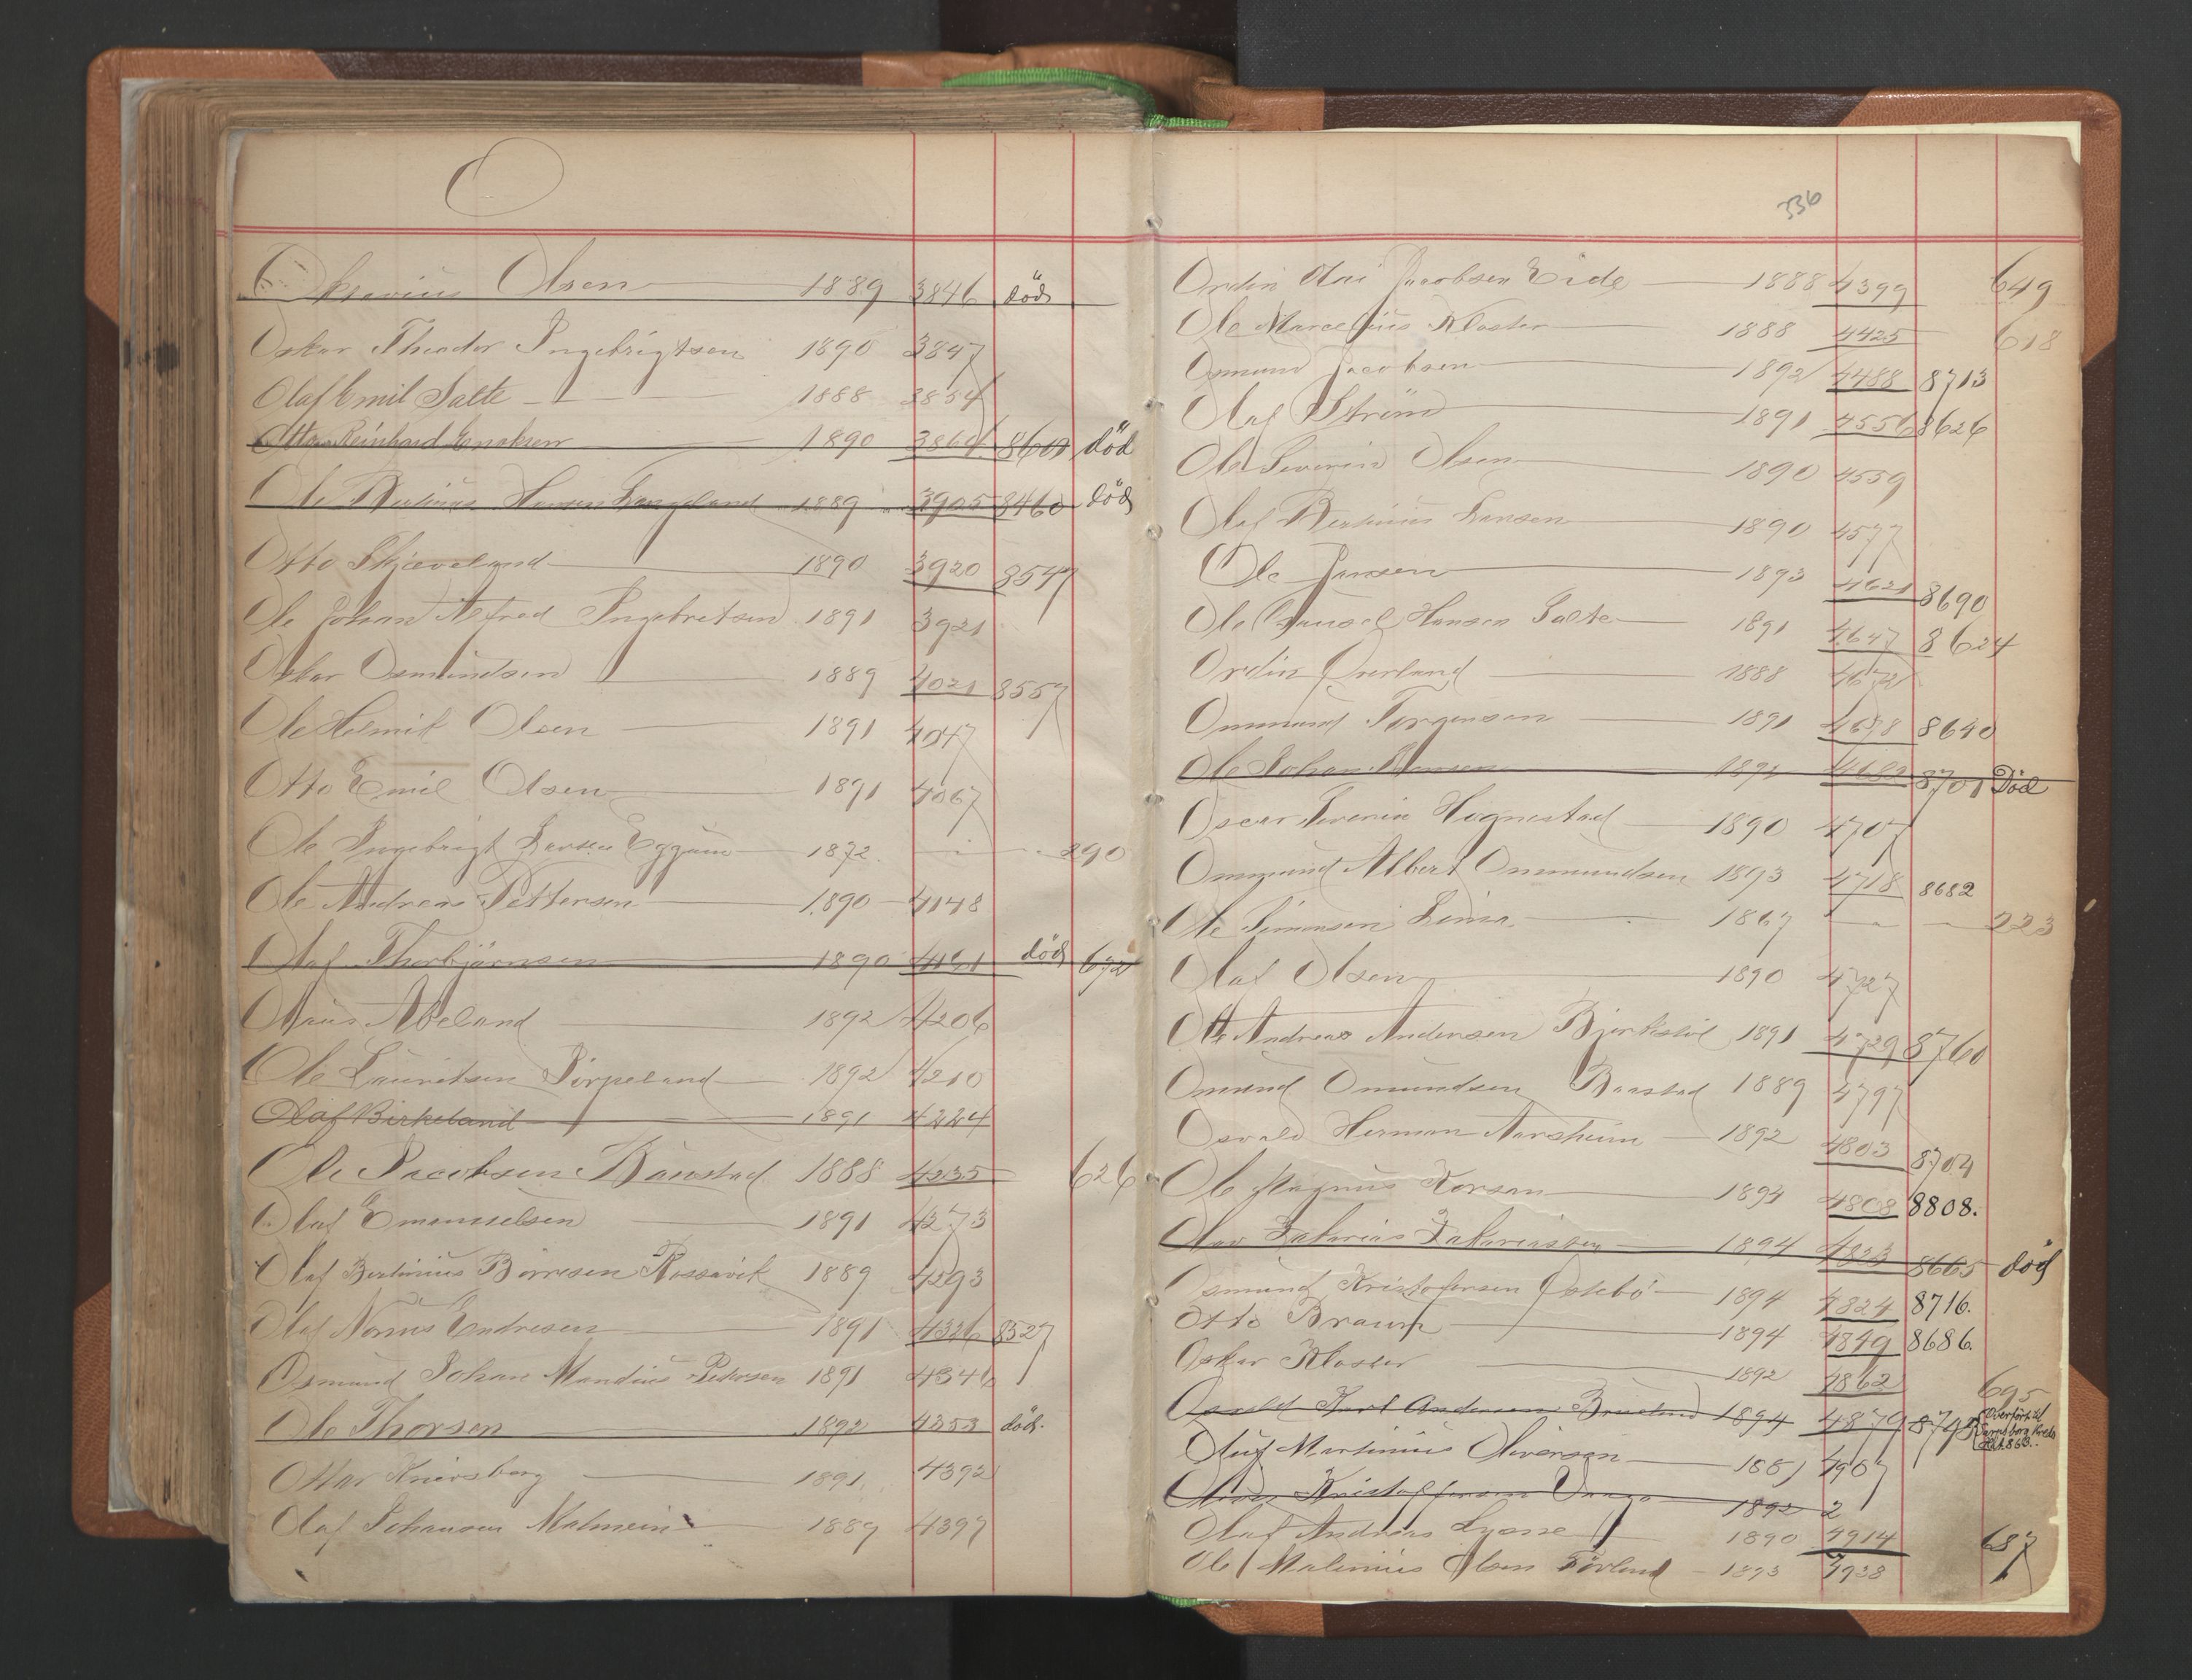 O
Oktavius Olsen 1889 3846 död
Oskar Theodor Ingebrigtsen 1890 3847
Olaf Emil Salte 1888 3854
Otto Reinhard Enoksen 1890 3864 död
Ole Bertinus Hansen Langeland 1889 3905 8460 död
Otto Skjæveland 1890 3920 8547
Ole Johan Alfred Ingebretsen 1891 3921
Oskar Osmundsen 1889 4021 8557
Ole Helmik Olsen 1891 4047
Otto Emil Olsen 1891 4067
Ole Ingebrigt Larsen Eggum 1872 290
Ole Andreas Pettersen 1890 4148
Olaf Thorbjörnsen 1890 död 672
Olaus Abeland 1892 4206
Ole Lauritsen Pirpeland 1892 4210
Olaf Birkeland 1891 4224
Ole Jacobsen Baustad 1888 4235 626
Olaf Emanuelsen 1891 4273
Olaf Bertinius Börresen Rossavik 1889 4293
Olaf Endresen 1891 4326 8527
Osmund Johan Mandius Pedersen 1891 4346
Ole Thorsen 1892 4353 död.
Ottar Knivsberg 1891 4392
Olaf Johansen Malmein 1889 4397
336
Ordin Olai Jacobsen Eide 1888 4399 649
Ole Marcelius Kloster 1888 4425 618
Osmund Jacobsen 1892 4488 8713
Olaf Ström 1891 4556 8626
Ole Severin Olsen 1890 4559
Olaf Bertinius Hansen 1890 4577
Ole Jansen 1893 4621 8690
Ole Hansen Salte 1891 4647 8624
Ordin Overland 1888
Ommund Torgersen 1891 8640
Ole Johan 8701 Död
Oscar Severin Hognestad 1890 4707
Ommund Albert Ommundsen 1893 4718 8682
Ole Simonsen Lima 1867 223
Olaf Olsen 1890 4727
Ole Andreas Andersen 1891 4729 8760
Omund Omundsen Raastad 1889 4797
Osvald Herman Aarsheim 1892 4803 8704
Ole Magnus Korsan 1894 4808 8808.
Olav Zakarias Zakariassen 1894 4823 8665 död
Osmund Kristofersen 1894 4824 8716.
Otto Braun 1894 4849 8686.
Oskar Kloster 1892 4862 695
Osvald Karl Andersen 1894 4879 Overført til Sarpsborg Kreds
Oluf Martinius Oliversen 4907
Kristoffersen 1892 2
Olaf Andreas 1890 4914 687
Ole Malinius Olsen Förland 1893 4938